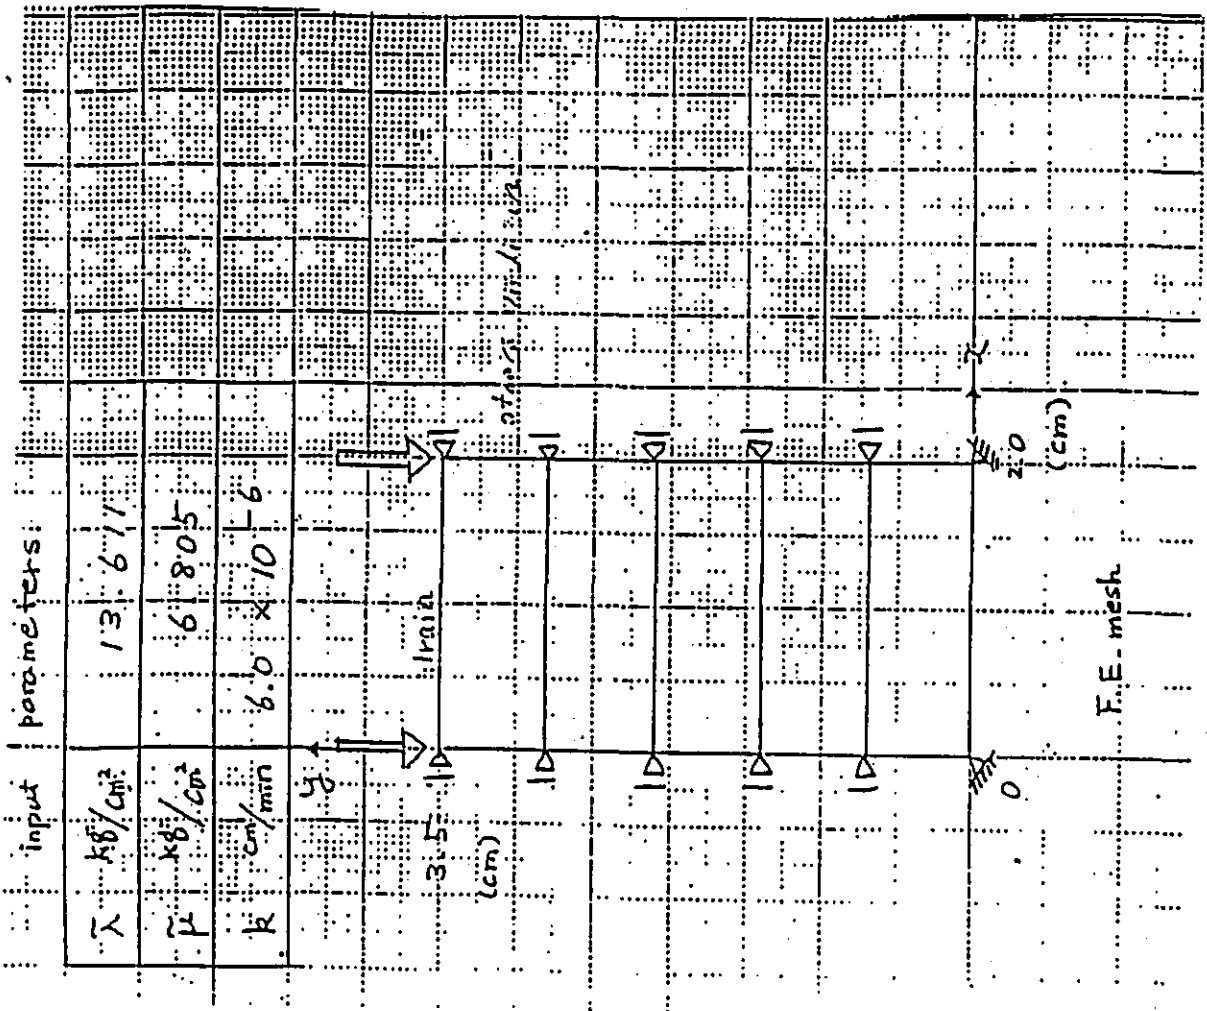 input parameters
λ̃ kg/cm² 13.611
μ̃ kg/cm² 6.805
k cm/min 6.0 × 10⁻⁶
y
3.5
(cm)
0
2.0
(cm)
F.E. mesh